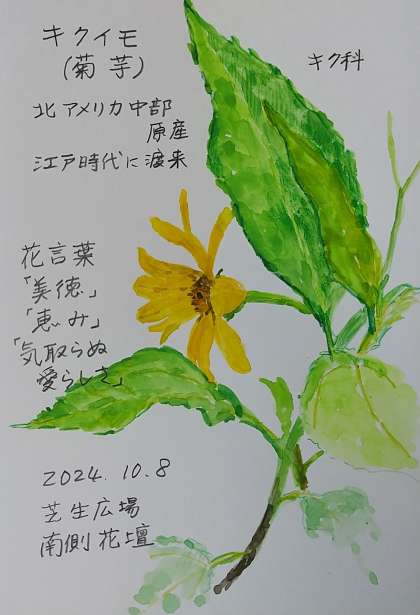 キクイモ
(菊芋)
キク科
北アメリカ中部
原産
江戸時代に渡来
花言葉
「美徳」
「恵み」
「気取らぬ
愛らしさ」
2024.10.8
芝生広場
南側花壇